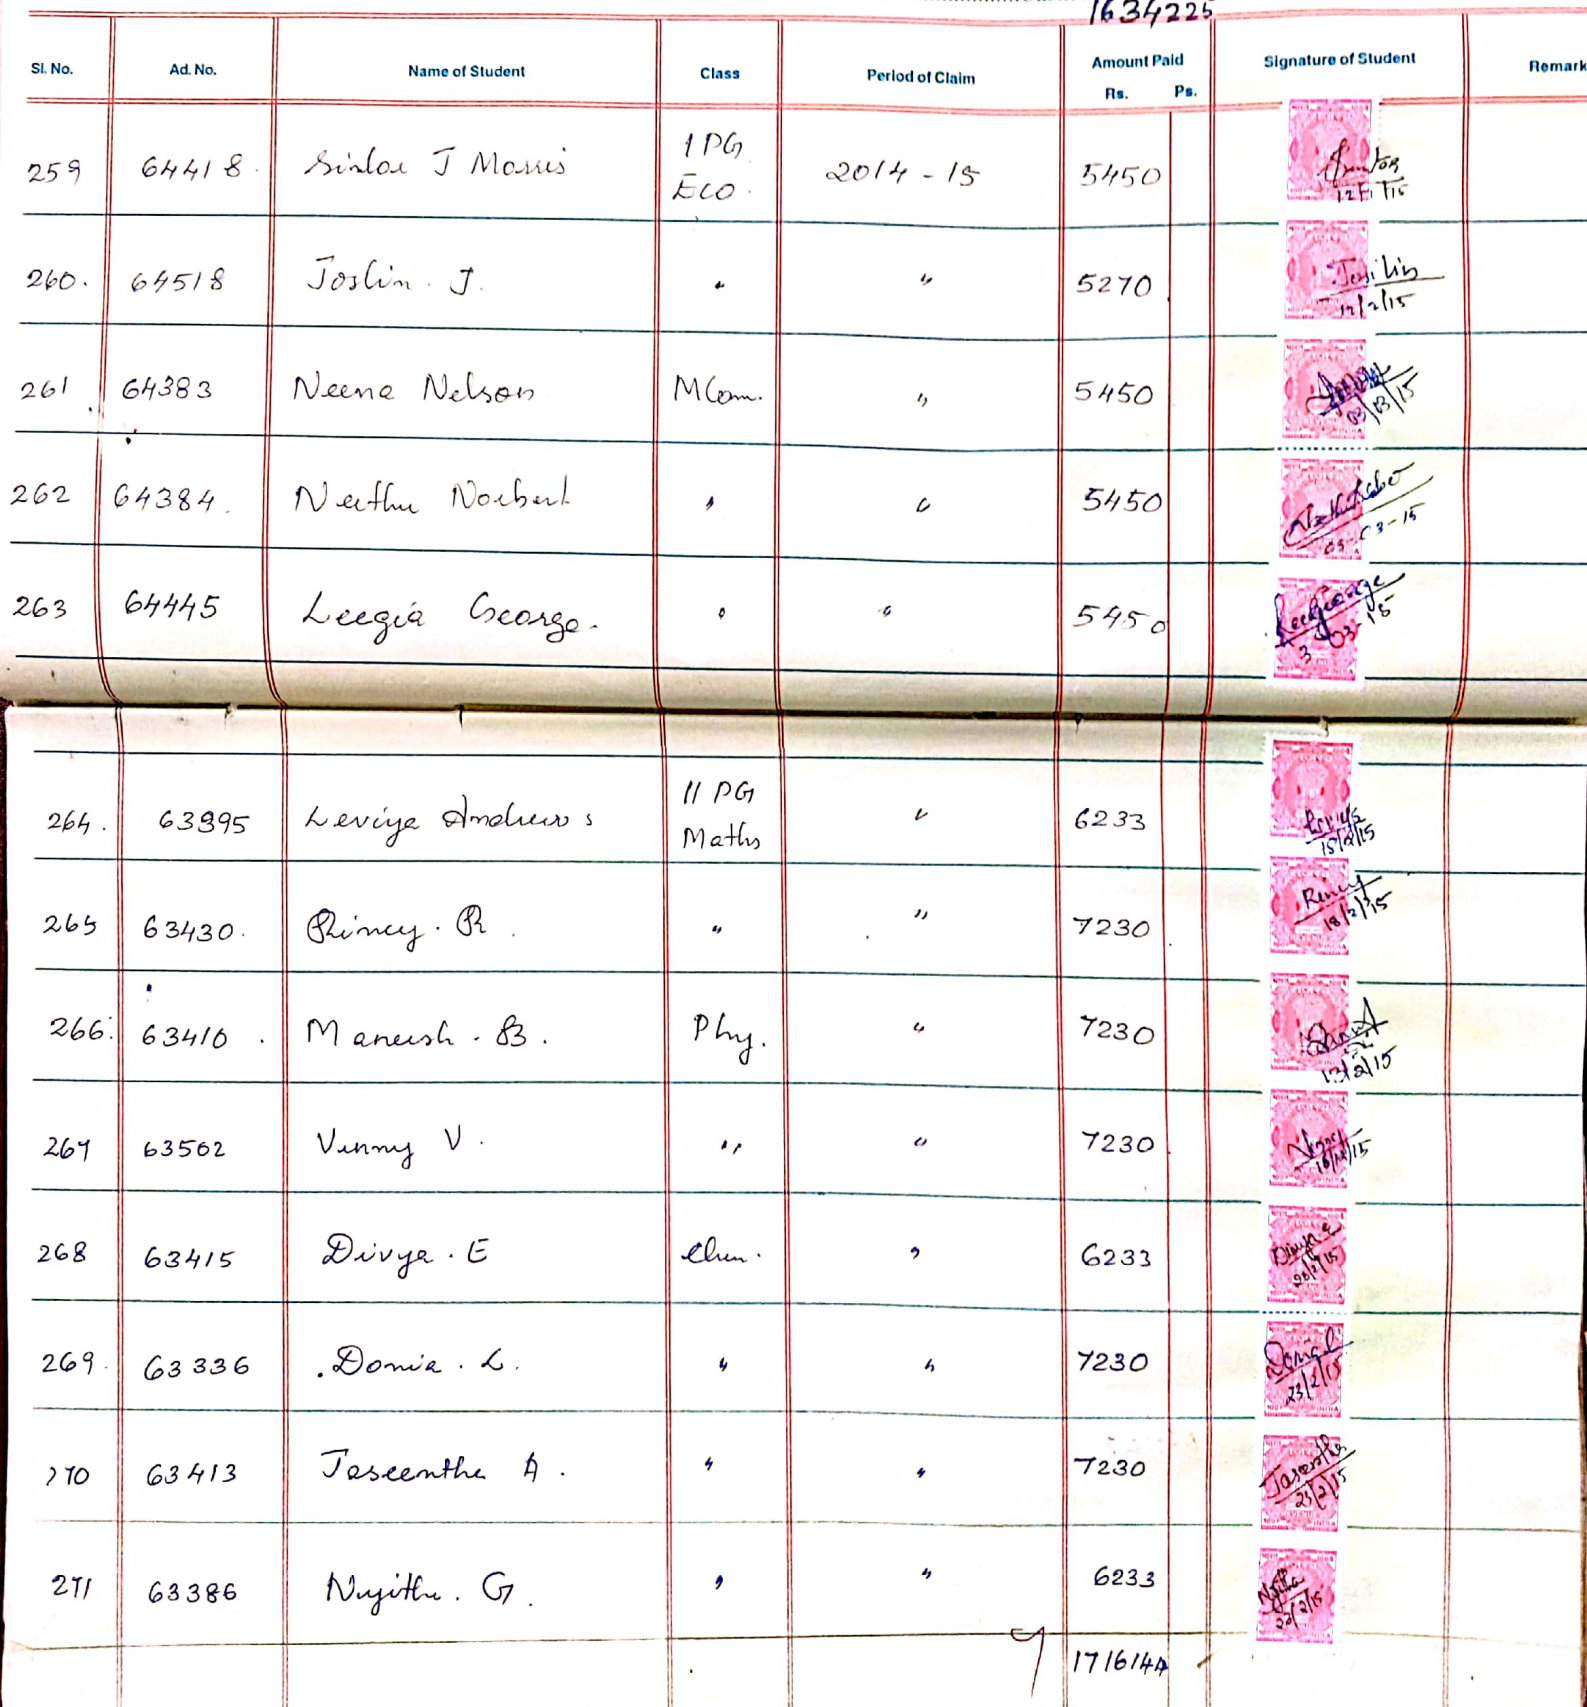 1634225
Sl. No. Ad. No. Name of Student Class Period of Claim Amount Paid Signature of Student Remark
Rs. Ps.
259 64418. Sinloe J Morris 1 PG Eco. 2014 - 15 5450 12/1/15
260. 64518 Joslin. J. " " 5270 Josilin 12/2/15
261 64383 Neena Nelson MCom. " 5450 03/03/15
262 64384. Neethu Norbert " " 5450 03-15
263 64445 Leegia George. " " 5450 Leegeorge 3 03-15
264. 63395 Leviya Andrews II PG Maths " 6233 Leviya 18/2/15
265 63430. Rincy. R. " " 7230 Rincy 18/2/15
266. 63410. Maneesh. B. Phy. " 7230 13/2/15
267 63502 Vinny V. " " 7230 Vinny
268 63415 Divya. E Chem. " 6233 Divya E
269. 63336 .Donia. L. " " 7230 Donia L 23/2/15
270 63413 Jaseentha A. " " 7230 Jasentha 23/2/15
271 63386 Nyithu. G. " " 6233 23/2/15
1716144